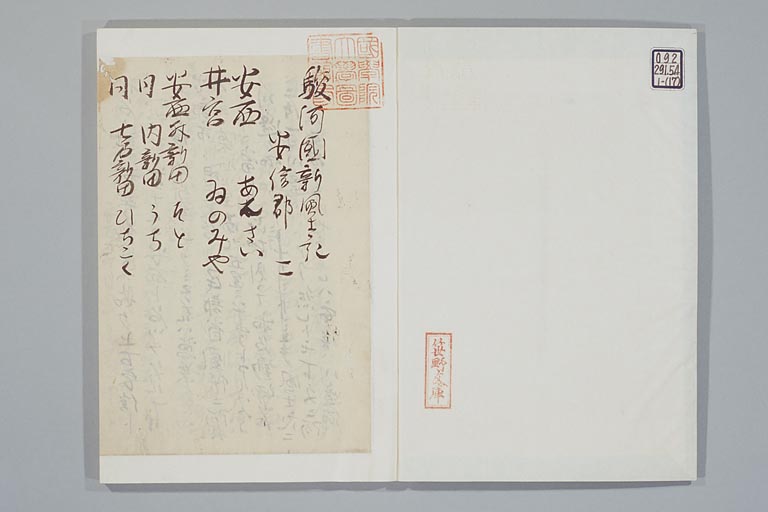 092
291.54
1-(17)
駿河國新風土記
安倍郡 二
安西 あんさい
井宮 ゐのみや
安西外新田 そと
同 内新田 うち
同 新田 ひちこく
笹野文庫